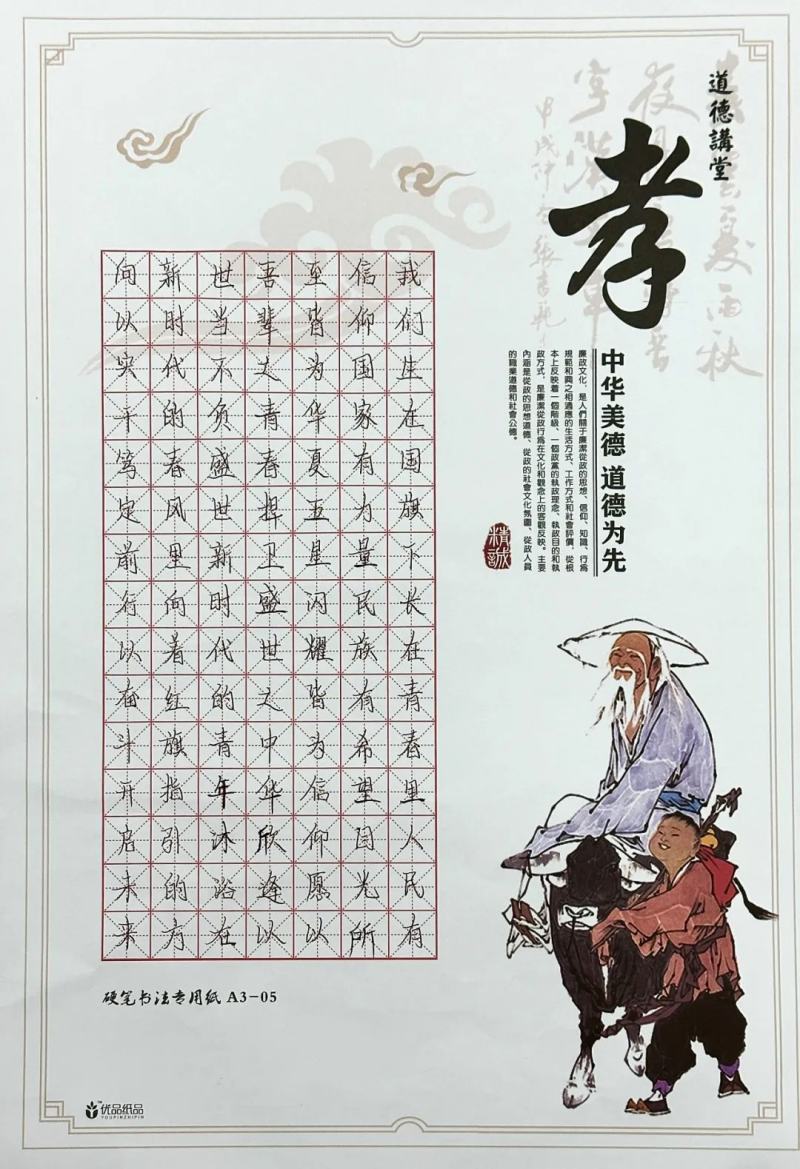 道德講堂
孝
中华美德 道德为先
廉政文化，是人們關于廉潔從政的思想、信仰、知識、行爲
規範和與之相適應的生活方式、工作方式和社會評價，從根
本上反映着一個階級、一個政黨的執政理念、執政目的和執
政方式，是廉潔從政行爲在文化和觀念上的客觀反映。主要
内涵是從政的思想道德、從政的社會文化氛圍、從政人員
的職業道德和社會公德。
精誠
我们生在国旗下长在青春里人民有
信仰国家有力量民族有希望目光所
至皆为华夏五星闪耀皆为信仰愿以
吾辈之青春捍卫盛世之中华欣逢以
世当不负盛世新时代的青年沐浴在
新时代的春风里向着红旗指引的方
向以实干笃定前行以奋斗开启未来
硬笔书法专用纸 A3-05
优品纸品
YOUPINZHIPIN